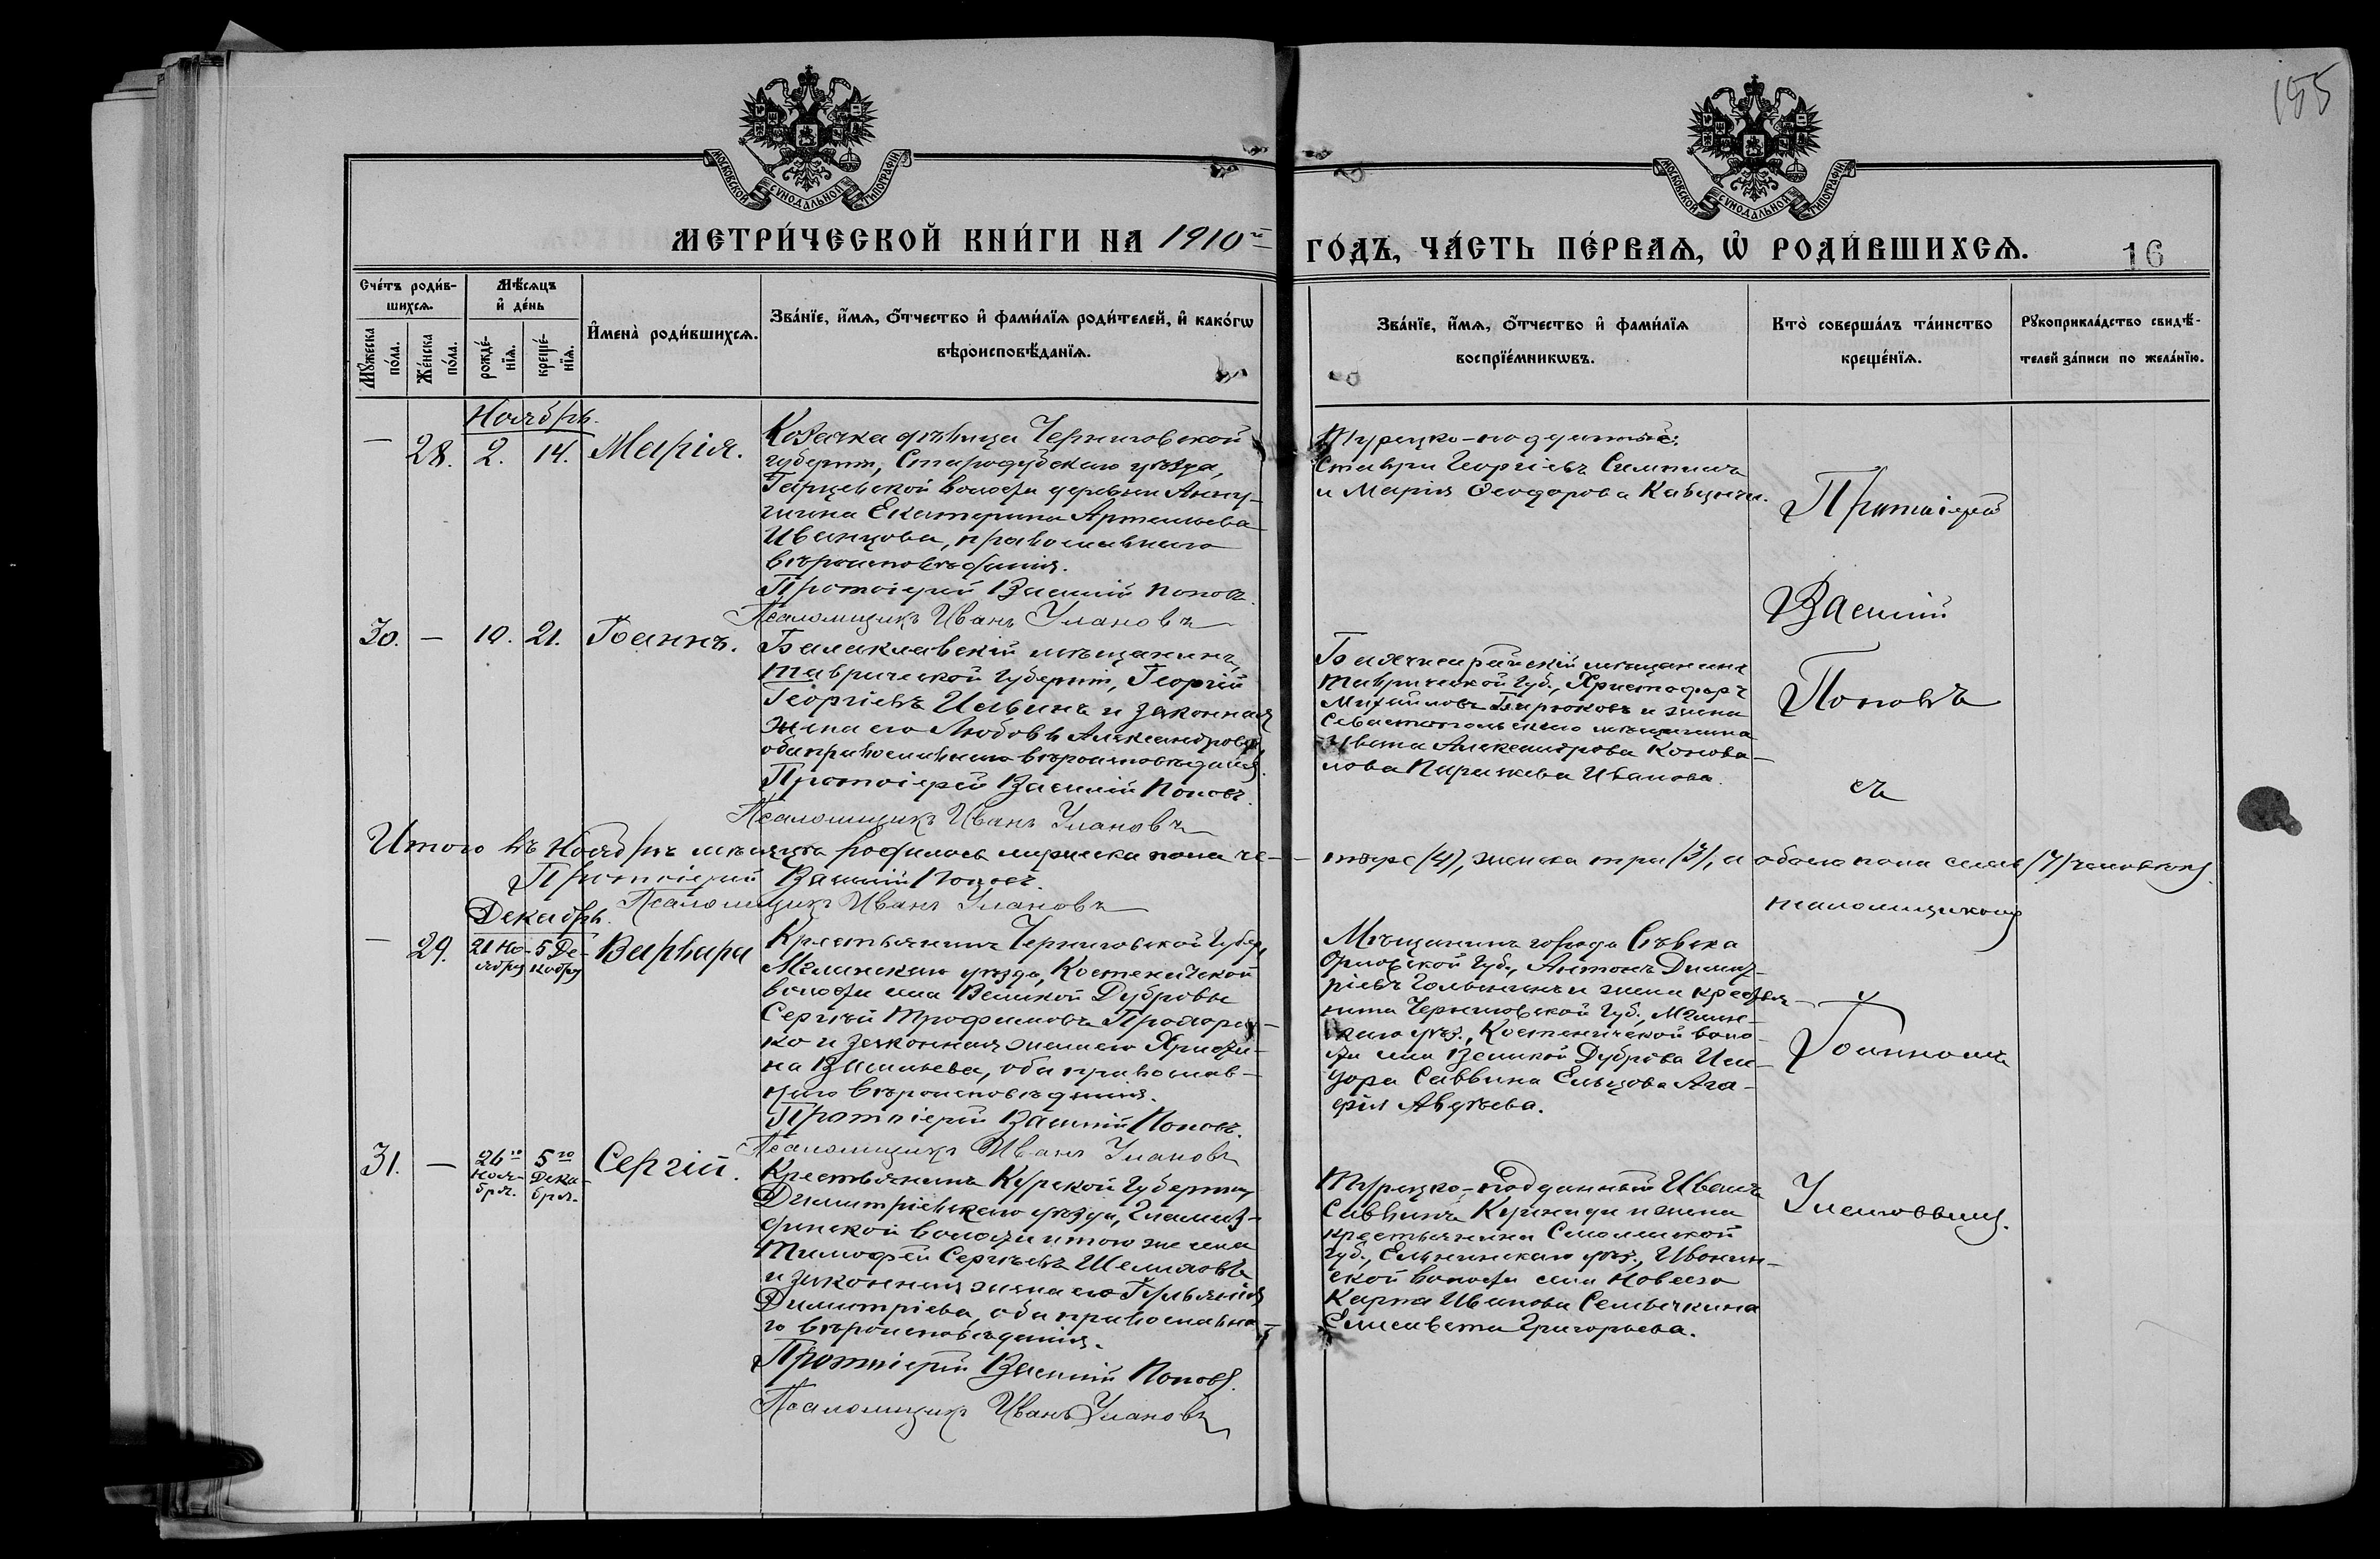 155
МОСКОВСКОЙ СѴНОДАЛЬНОЙ ТИПОГРАФІИ
МОСКОВСКОЙ СѴНОДАЛЬНОЙ ТИПОГРАФІИ
МЕТРИ́ЧЕСКОЙ КНИ́ГИ НА 1910й ГО́ДЪ, ЧА́СТЬ ПЕ́РВАѦ, Ѡ҆ РОДИ́ВШИХСѦ.
16
Сче́тъ роди́в-
шихсѧ.
Мꙋ́жеска
по́ла.
Же́нска
по́ла.
Мѣ́сѧцъ
и҆ де́нь
рожде́-
нїѧ.
креще́-
нїѧ.
И҆мена̀ роди́вшихсѧ.
Зва́нїе, и҆́мѧ, ѻ҆́тчество и҆ фами́лїѧ роди́телей, и҆ како́гѡ
вѣроисповѣ́данїѧ.
Зва́нїе, и҆́мѧ, ѻ҆́тчество и҆ фами́лїѧ
воспрїе́мникѡвъ.
Кто̀ соверша́лъ та́инство
креще́нїѧ.
Рꙋкоприкла́дство свидѣ́-
телей за́писи по жела́нїю.
Ноябрь.
— 28. 2. 14. Марія.
Козачка дѣвица Черниговской
губерніи, Стародубскаго уѣзда,
волости деревни
Екатерина Артемьева
Иванцова, православнаго
вѣроисповѣданія.
Протоіерей Василій Поповъ.
Псаломщикъ Иванъ Улановъ
Турецко-подданные:
Ставри Георгіевъ
и Марія Ѳеодорова
30. — 10. 21. Іоаннъ.
Балаклавскій мѣщанинъ,
Таврической губерніи, Георгій
Георгіевъ Ильинъ и законная
жена его Любовь Александрова,
оба православнаго вѣроисповѣданія.
Протоіерей Василій Поповъ.
Псаломщикъ Иванъ Улановъ
Бахчисарайскій мѣщанинъ
Таврической губ., Христофоръ
Михайловъ Бирюковъ и жена
Севастопольскаго мѣщанина
Александрова Конова-
лова Параскева Иванова.
Итого въ Ноябрѣ мѣсяцѣ родилось мужеска пола че-
тыре (4), женска три (3), а обоего пола семь (7) человѣкъ.
Протоіерей Василій Поповъ.
Псаломщикъ Иванъ Улановъ
Декабрь.
— 29. 21 Но-
ября 5 Де-
кабря Варвара
Крестьянинъ Черниговской губер.,
Мглинскаго уѣзда, Костеничской
волости села Великой Дубровы
Сергѣй Трофимовъ
ко и законная жена его Христи-
на Васильева, оба православ-
наго вѣроисповѣданія.
Протоіерей Василій Поповъ.
Псаломщикъ Иванъ Улановъ
Мѣщанинъ города Сѣвска
Орловской губ., Антонъ Димит-
ріевъ и жена крестья-
нина Черниговской губ., Мглин-
скаго уѣз., Костеничской воло-
сти села Великой Дуброва Иси-
дора Саввина Ельцова Ага-
фія Авдѣева.
31. — 26го
Нояб-
бря. 5го
Дека-
бря. Сергій.
Крестьянинъ Курской губерніи
Димитріевскаго уѣзда,
волости и того же села
Тимофей Сергѣевъ
и законная жена его
Димитріева, оба православна-
го вѣроисповѣданія.
Протоіерей Василій Поповъ.
Псаломщикъ Иванъ Улановъ
Турецко-подданный Иванъ
Саввинъ и жена
крестьянина Смоленской
губ., Ельнинскаго уѣз., Ивонин-
ской волости села Новаго
Карпа Иванова Семычкина
Елисавета Григорьева.
Протоіерей
Василій
Поповъ
съ
псаломщикомъ
Іоанномъ
Улановымъ.